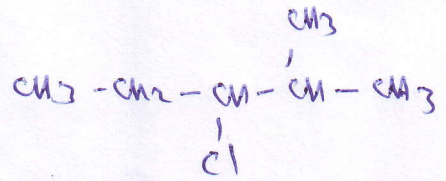 CH3
CH3 - CH2 - CH - CH - CH3
Cl